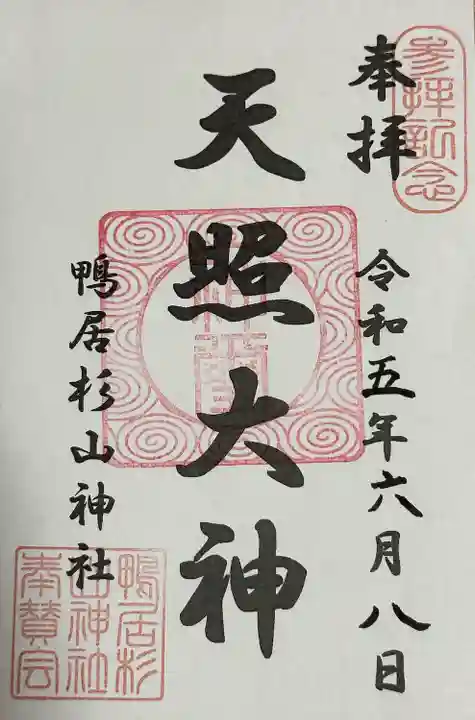 参拝記念
奉拝
令和五年六月八日
天照大神
鴨居杉山神社
鴨居杉
山神社
奉賛会